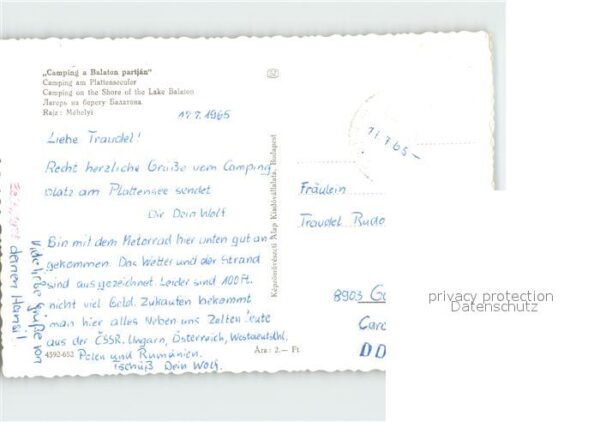 „Camping a Balaton partján“
Camping am Plattenseeufer
Camping on the Shore of the Lake Balaton
Лагерь на берегу Балатона
Rajz: Méhelyi
17.7.1965
Liebe Traudel!
Recht herzliche Grüße vom Camping
platz am Plattensee sendet
Dir Dein Wolf
Bin mit dem Motorrad hier unten gut an
gekommen. Das Wetter und der Strand
sind ausgezeichnet. Leider sind 100 Ft.
nicht viel Geld. Zukaufen bekommt
man hier alles. Neben uns Zelten Leute
aus der ČSSR, Ungarn, Österreich, Westdeutschl.
Polen und Rumänien.
Tschüß Dein Wolf.
4592-652
Ára: 2.— Ft
Viele liebe Grüße von
deinen Hansi!
Képzőművészeti Alap Kiadóvállalata, Budapest
17.7.65-
Fräulein
Traudel Rudo
8903 G
Car
DD
privacy protection
Datenschutz